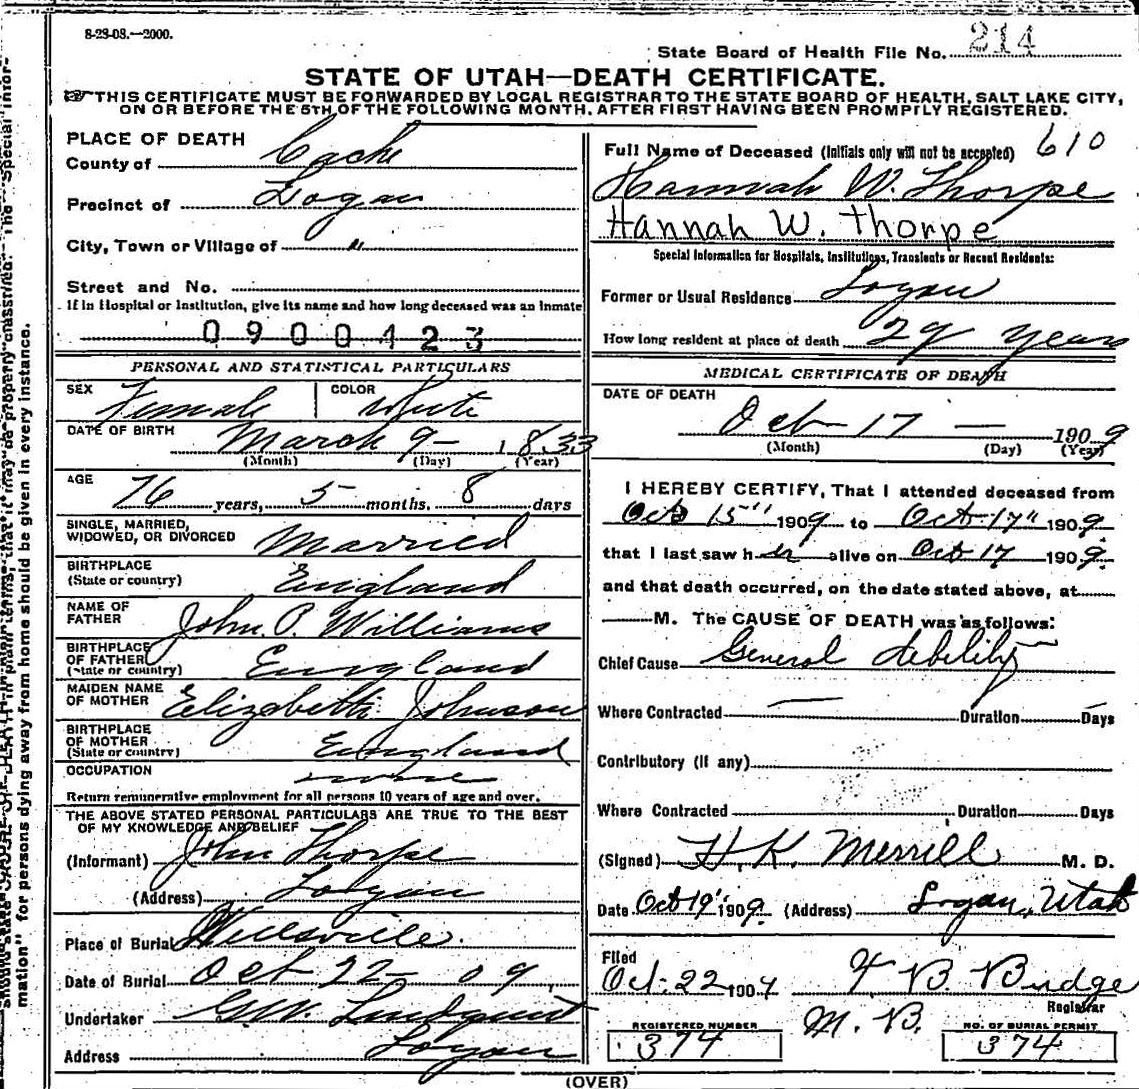 8-23-08.—2000.
State Board of Health File No. 214
STATE OF UTAH—DEATH CERTIFICATE.
THIS CERTIFICATE MUST BE FORWARDED BY LOCAL REGISTRAR TO THE STATE BOARD OF HEALTH, SALT LAKE CITY,
ON OR BEFORE THE 5TH OF THE FOLLOWING MONTH, AFTER FIRST HAVING BEEN PROMPTLY REGISTERED.
PLACE OF DEATH
County of Cache
Precinct of Logan
City, Town or Village of "
Street and No.
If in Hospital or Institution, give its name and how long deceased was an inmate
0900423
PERSONAL AND STATISTICAL PARTICULARS
SEX Female COLOR White
DATE OF BIRTH March 9 — 1833
(Month) (Day) (Year)
AGE 76 years, 5 months. 8 days
SINGLE, MARRIED,
WIDOWED, OR DIVORCED Married
BIRTHPLACE
(State or country) England
NAME OF
FATHER John P. Williams
BIRTHPLACE
OF FATHER
(State or country) England
MAIDEN NAME
OF MOTHER Elizabeth Johnson
BIRTHPLACE
OF MOTHER
(State or country) England
OCCUPATION none
Return remunerative employment for all persons 10 years of age and over.
THE ABOVE STATED PERSONAL PARTICULARS ARE TRUE TO THE BEST
OF MY KNOWLEDGE AND BELIEF
(Informant) John Thorpe
(Address) Logan
Place of Burial Wellsville.
Date of Burial Oct 22 — 09
Undertaker G.W. Lindquist
Address Logan
Full Name of Deceased (Initials only will not be accepted) 610
Hannah W. Thorpe
Hannah W. Thorpe
Special Information for Hospitals, Institutions, Transients or Recent Residents:
Former or Usual Residence Logan
How long resident at place of death 29 years
MEDICAL CERTIFICATE OF DEATH
DATE OF DEATH
Oct 17 — 1909
(Month) (Day) (Year)
I HEREBY CERTIFY, That I attended deceased from
Oct 15" 1909 to Oct 17" 1909
that I last saw her alive on Oct 17 1909.
and that death occurred, on the date stated above, at
M. The CAUSE OF DEATH was as follows:
Chief Cause General debility
Where Contracted — Duration — Days
Contributory (if any)
Where Contracted Duration Days
(Signed) H. K. Merrill M. D.
Date Oct 19 1909 (Address) Logan, Utah
Filed
Oct. 22 1909 F B Budge
Registrar
M. B.
REGISTERED NUMBER NO. OF BURIAL PERMIT
374 374
(OVER)
mation" for persons dying away from home should be given in every instance.